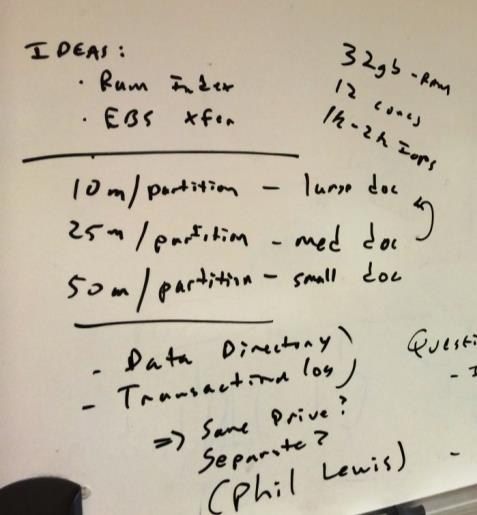 IDEAS:
· Ram Index
· EBS xfer
32gb - RAM
12 cores
1k-2k Iops
10m/partition - large doc
25m/partition - med doc
50m/partition - small doc
- Data Directory
- Transaction log
=> Same Drive?
Separate?
(Phil Lewis)
Questi
- I
-